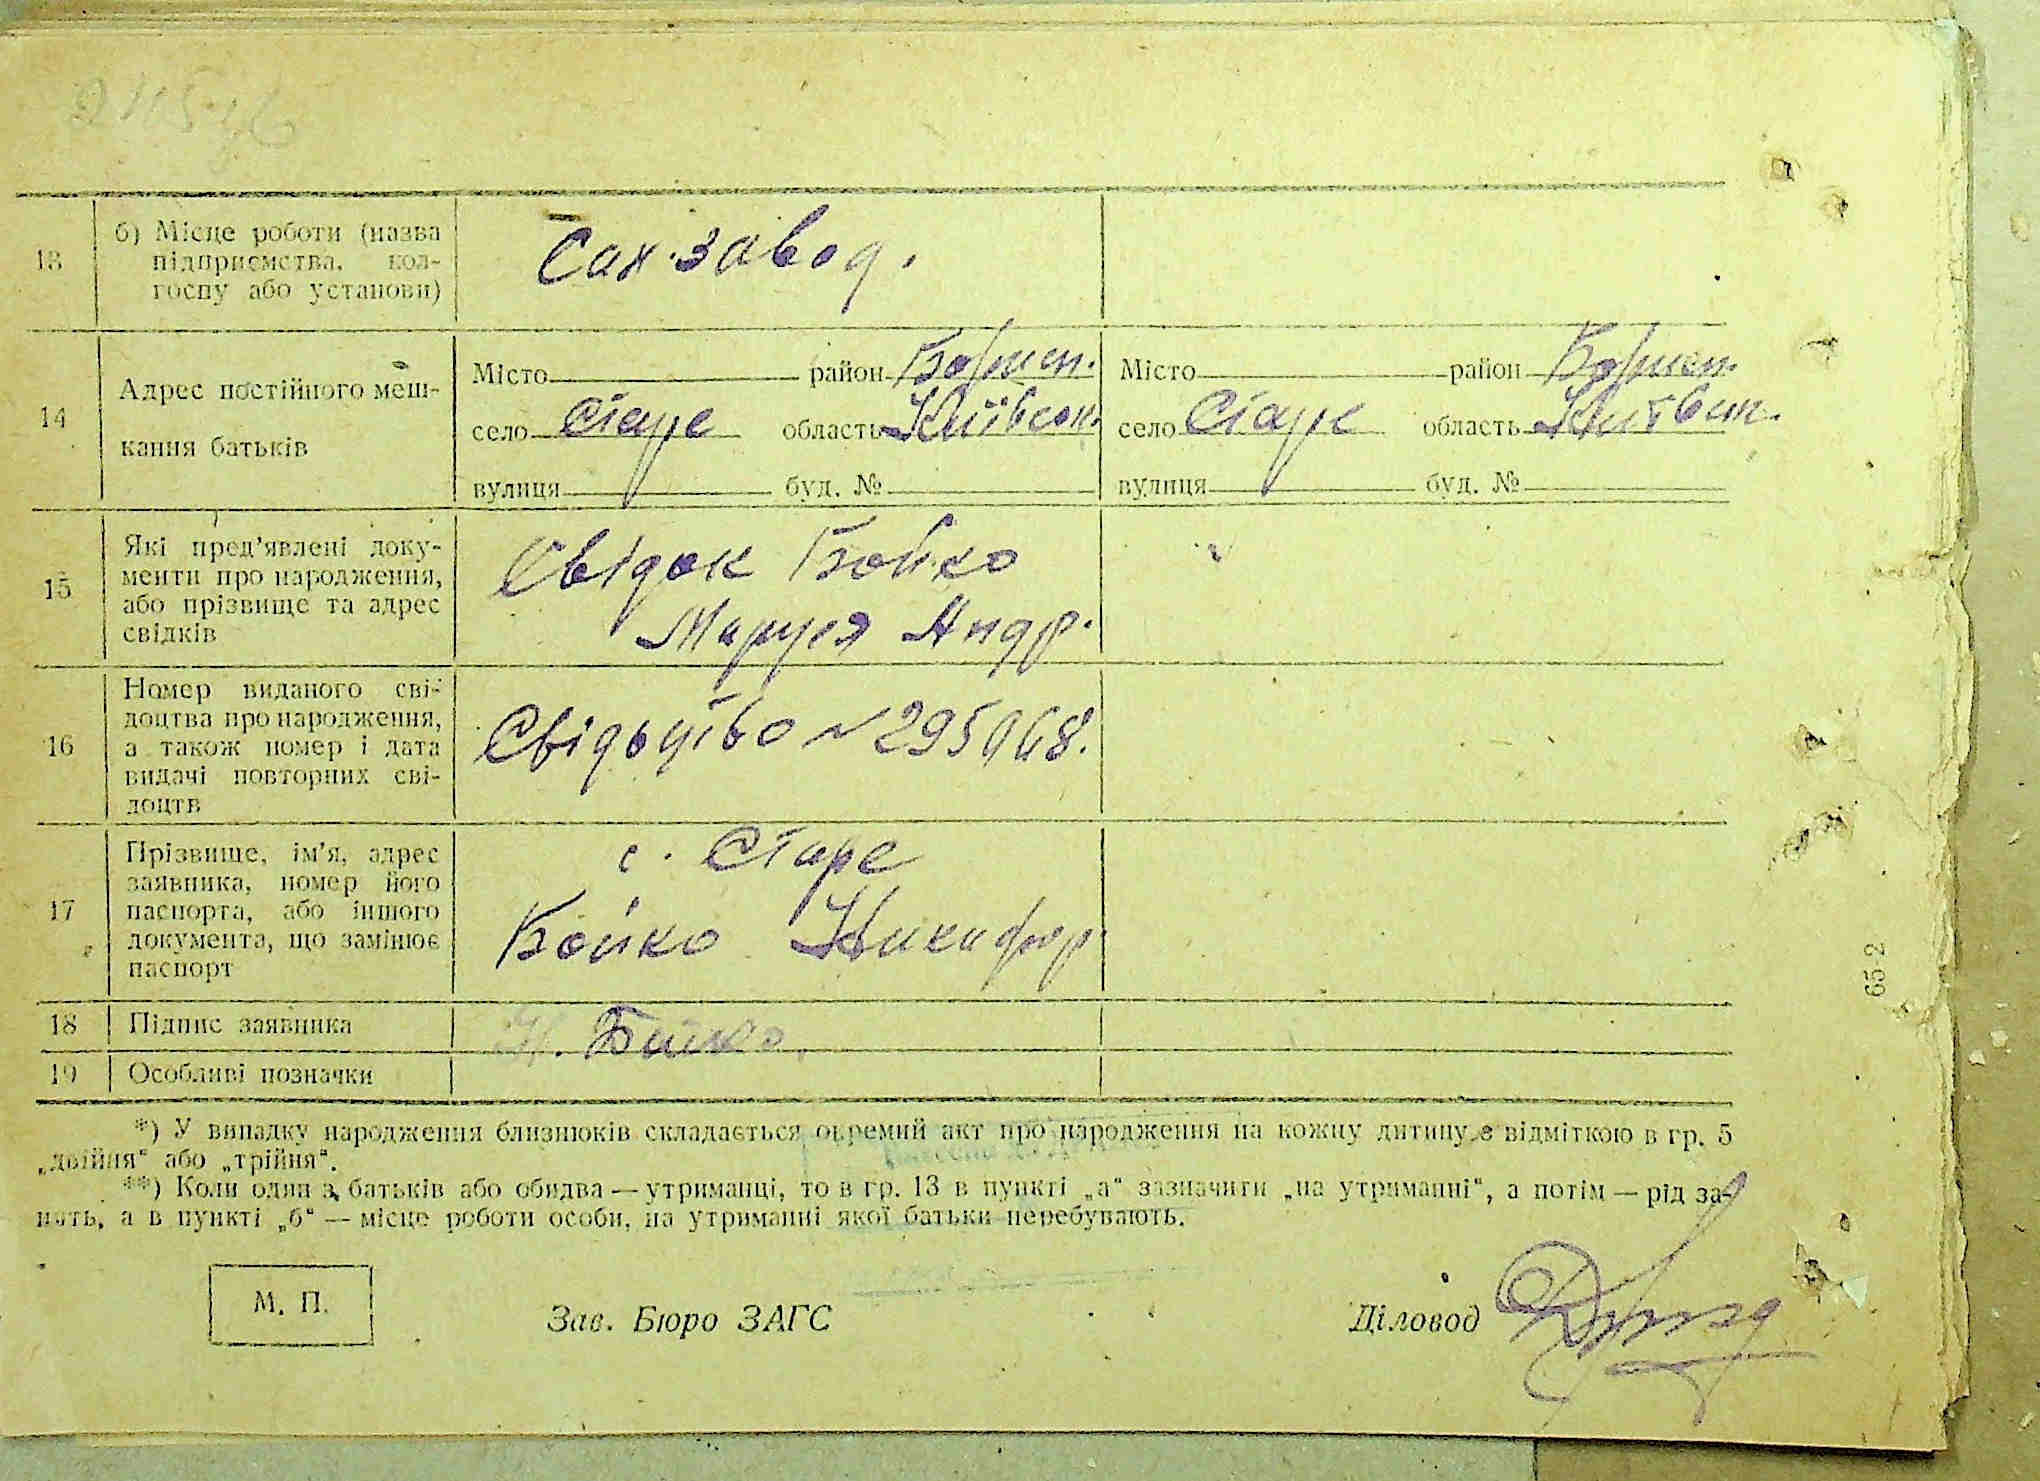 13 б) Місце роботи (назва
підприємства, кол-
госпу або установи)
Сах. завод.
14 Адрес постійного меш-
кання батьків
Місто район Борисп. Місто район Борисп.
село Старе область Київськ. село Старе область Київськ.
вулиця буд. № вулиця буд. №
15 Які пред'явлені доку-
менти про народження,
або прізвище та адрес
свідків
Свідок Бойко
Маруся Андр.
16 Номер виданого сві-
доцтва про народження,
а також номер і дата
видачі повторних сві-
доцтв
Свідоцтво № 295968.
17 Прізвище, ім'я, адрес
заявника, номер його
паспорта, або іншого
документа, що замінює
паспорт
с. Старе
Бойко Никифор
18 Підпис заявника Н. Бойко
19 Особливі позначки
*) У випадку народження близнюків складається окремий акт про народження на кожну дитину з відміткою в гр. 5
„двійня“ або „трійня“.
**) Коли один з батьків або обидва — утриманці, то в гр. 13 в пункті „а“ зазначити „на утриманні“, а потім — рід за-
нять, а в пункті „б“ — місце роботи особи, на утриманні якої батьки перебувають.
М. П. Зав. Бюро ЗАГС Діловод
65-2